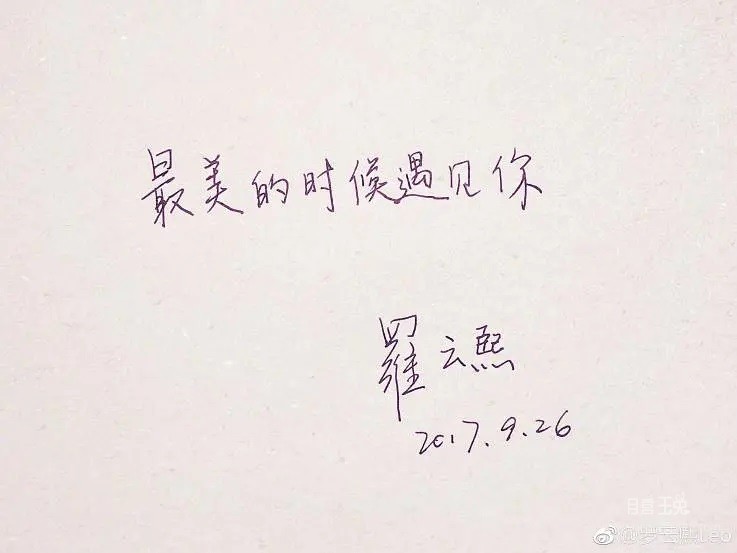 最美的时候遇见你
羅云熙
2017.9.26
@罗云熙Leo